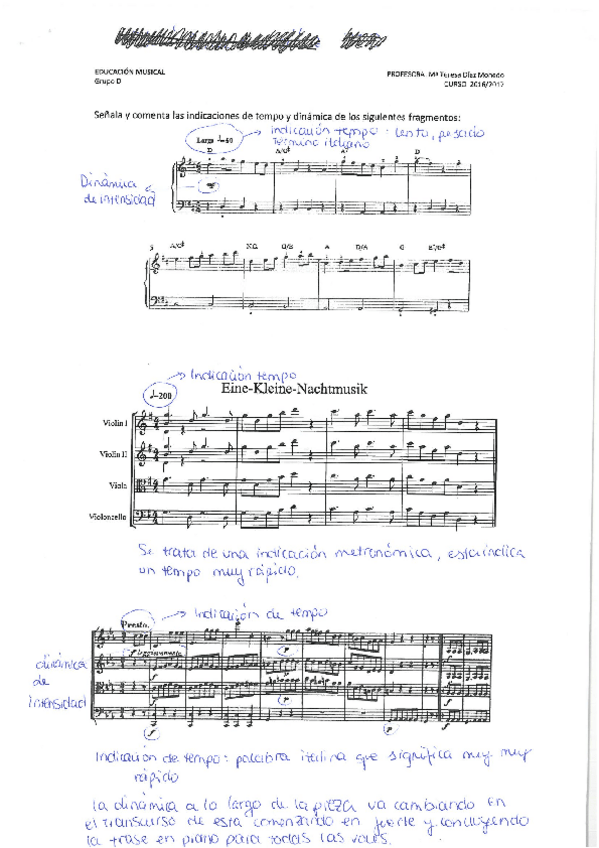 EDUCACIÓN MUSICAL
Grupo D
PROFESORA: Mª Teresa Díaz Mohedo
CURSO 2016/2017
Señala y comenta las indicaciones de tempo y dinámica de los siguientes fragmentos:
Largo ♩=50
Indicación tempo: lento, pesado
Término italiano
D A/C# A7 D
Dinámica
de intensidad
5 A/C# N.C. G/B A D/A G
Indicación tempo
♩=200
Eine-Kleine-Nachtmusik
Violin I
Violin II
Viola
Violoncello
Se trata de una indicación metronómica, esta indica
un tempo muy rápido.
Indicación de tempo
Presto.
f p
dinámica
de
intensidad
f p
Indicación de tempo: palabra italina que significa muy muy
rápido
la dinámica a lo largo de la pieza va cambiando en
el transcurso de esta comenzando en fuerte y concluyendo
la frase en piano para todas las voces.